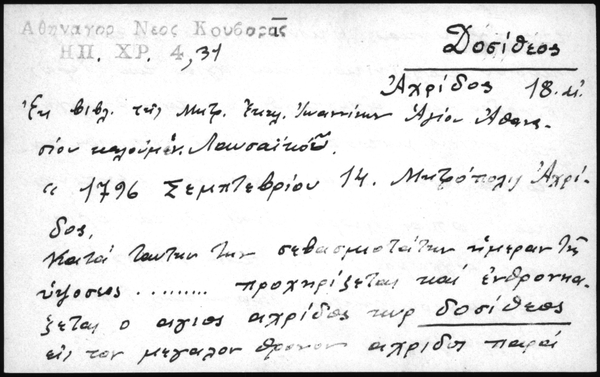 Αθηναγορ Νεος Κουβαρᾶς
ΗΠ. ΧΡ. 4, 31
Δοσίθεος
Ἀχρίδος 18. αἰ.
Ἐκ βιβλ. τῆς Μητρ. Ἐκκλ. Ἰωαννίνων Ἁγίου Ἀθανα-
σίου καλούμεν. Λαυσαϊκοῦ.
" 1796 Σεμπτεβρίου 14. Μητρόπολις Ἀχρί-
δος,
Κατά ταυτην την σεβασμιοτάτην ἡμεραν τῆς
ὑψοσεος ......... προχηρίζεται καί ἐνθρονιά-
ζεται ο αγιος αχρίδος κυρ δοσίθεος
εἰς τον μεγαλον θρονον αχριδος παρά